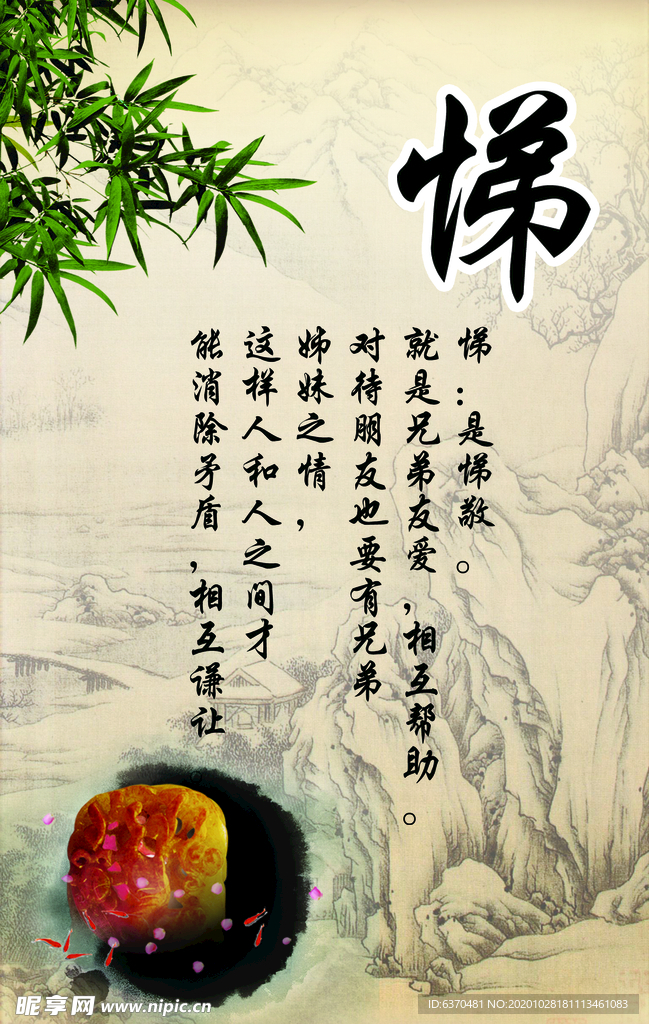 悌
悌：是悌敬。
就是兄弟友爱，相互帮助。
对待朋友也要有兄弟
姊妹之情，
这样人和人之间才
能消除矛盾，相互谦让
昵享网 www.nipic.cn
ID:6370481 NO:20201028181113461083